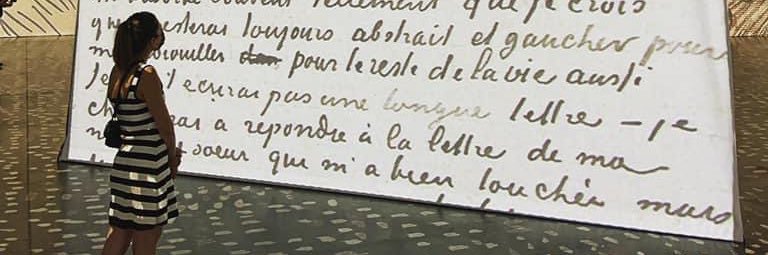 souvent tellement que je crois
toujours abstrait et gaucher pour
pour le reste de la vie aussi
Je ecrirai pas une longue lettre – je
a repondre à la lettre de ma
soeur qui m'a bien touché mais